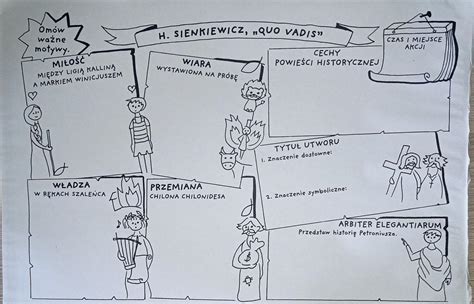 Omów
ważne
motywy.
H. SIENKIEWICZ, „QUO VADIS”
CZAS I MIEJSCE
AKCJI
MIŁOŚĆ
MIĘDZY LIGIĄ KALLINĄ
A MARKIEM WINICJUSZEM
WIARA
WYSTAWIONA NA PRÓBĘ
CECHY
POWIEŚCI HISTORYCZNEJ
TYTUŁ UTWORU
1. Znaczenie dosłowne:
2. Znaczenie symboliczne:
WŁADZA
W RĘKACH SZALEŃCA
PRZEMIANA
CHILONA CHILONIDESA
ARBITER ELEGANTIARUM
Przedstaw historię Petroniusza.